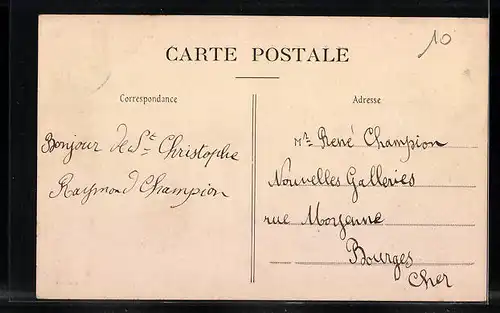 10
CARTE POSTALE
Correspondance
Bonjour de St Christophe
Raymond Champion
Adresse
Mr René Champion
Nouvelles Galleries
rue Moyenne
Bourges
Cher